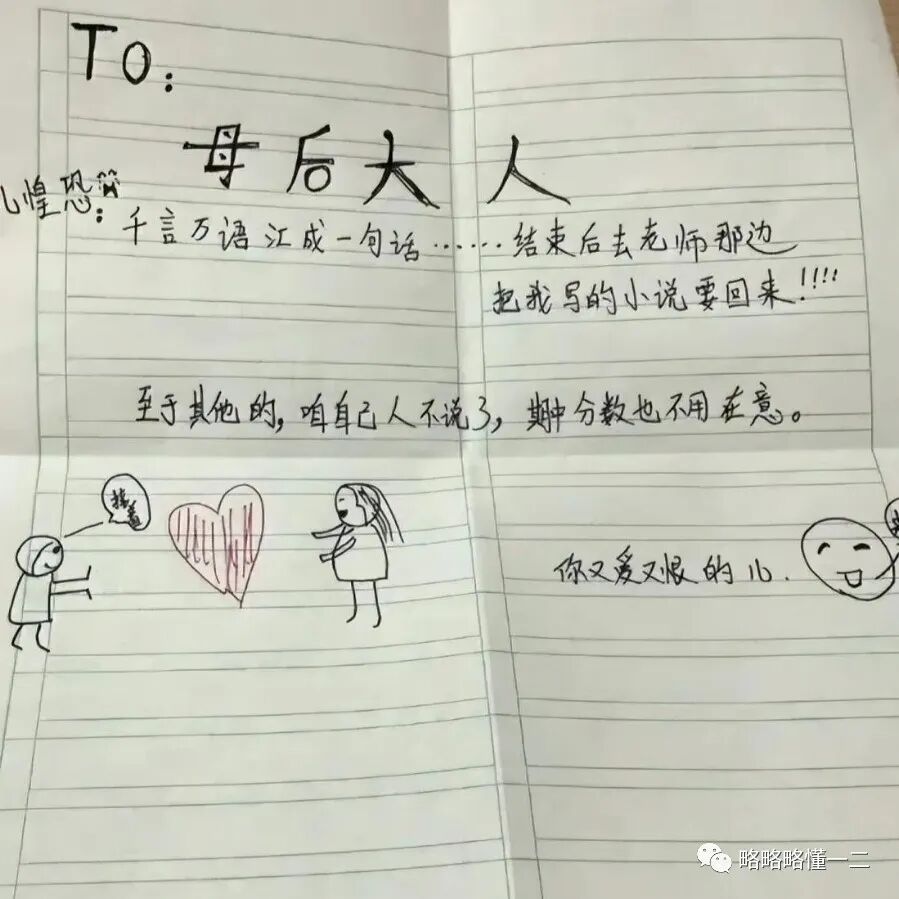 TO:
母后大人
儿惶恐:
千言万语汇成一句话……结束后去老师那边
把我写的小说要回来!!!!
至于其他的,咱自己人不说了,期中分数也不用在意。
接着
你又爱又恨的儿.
略略略懂一二